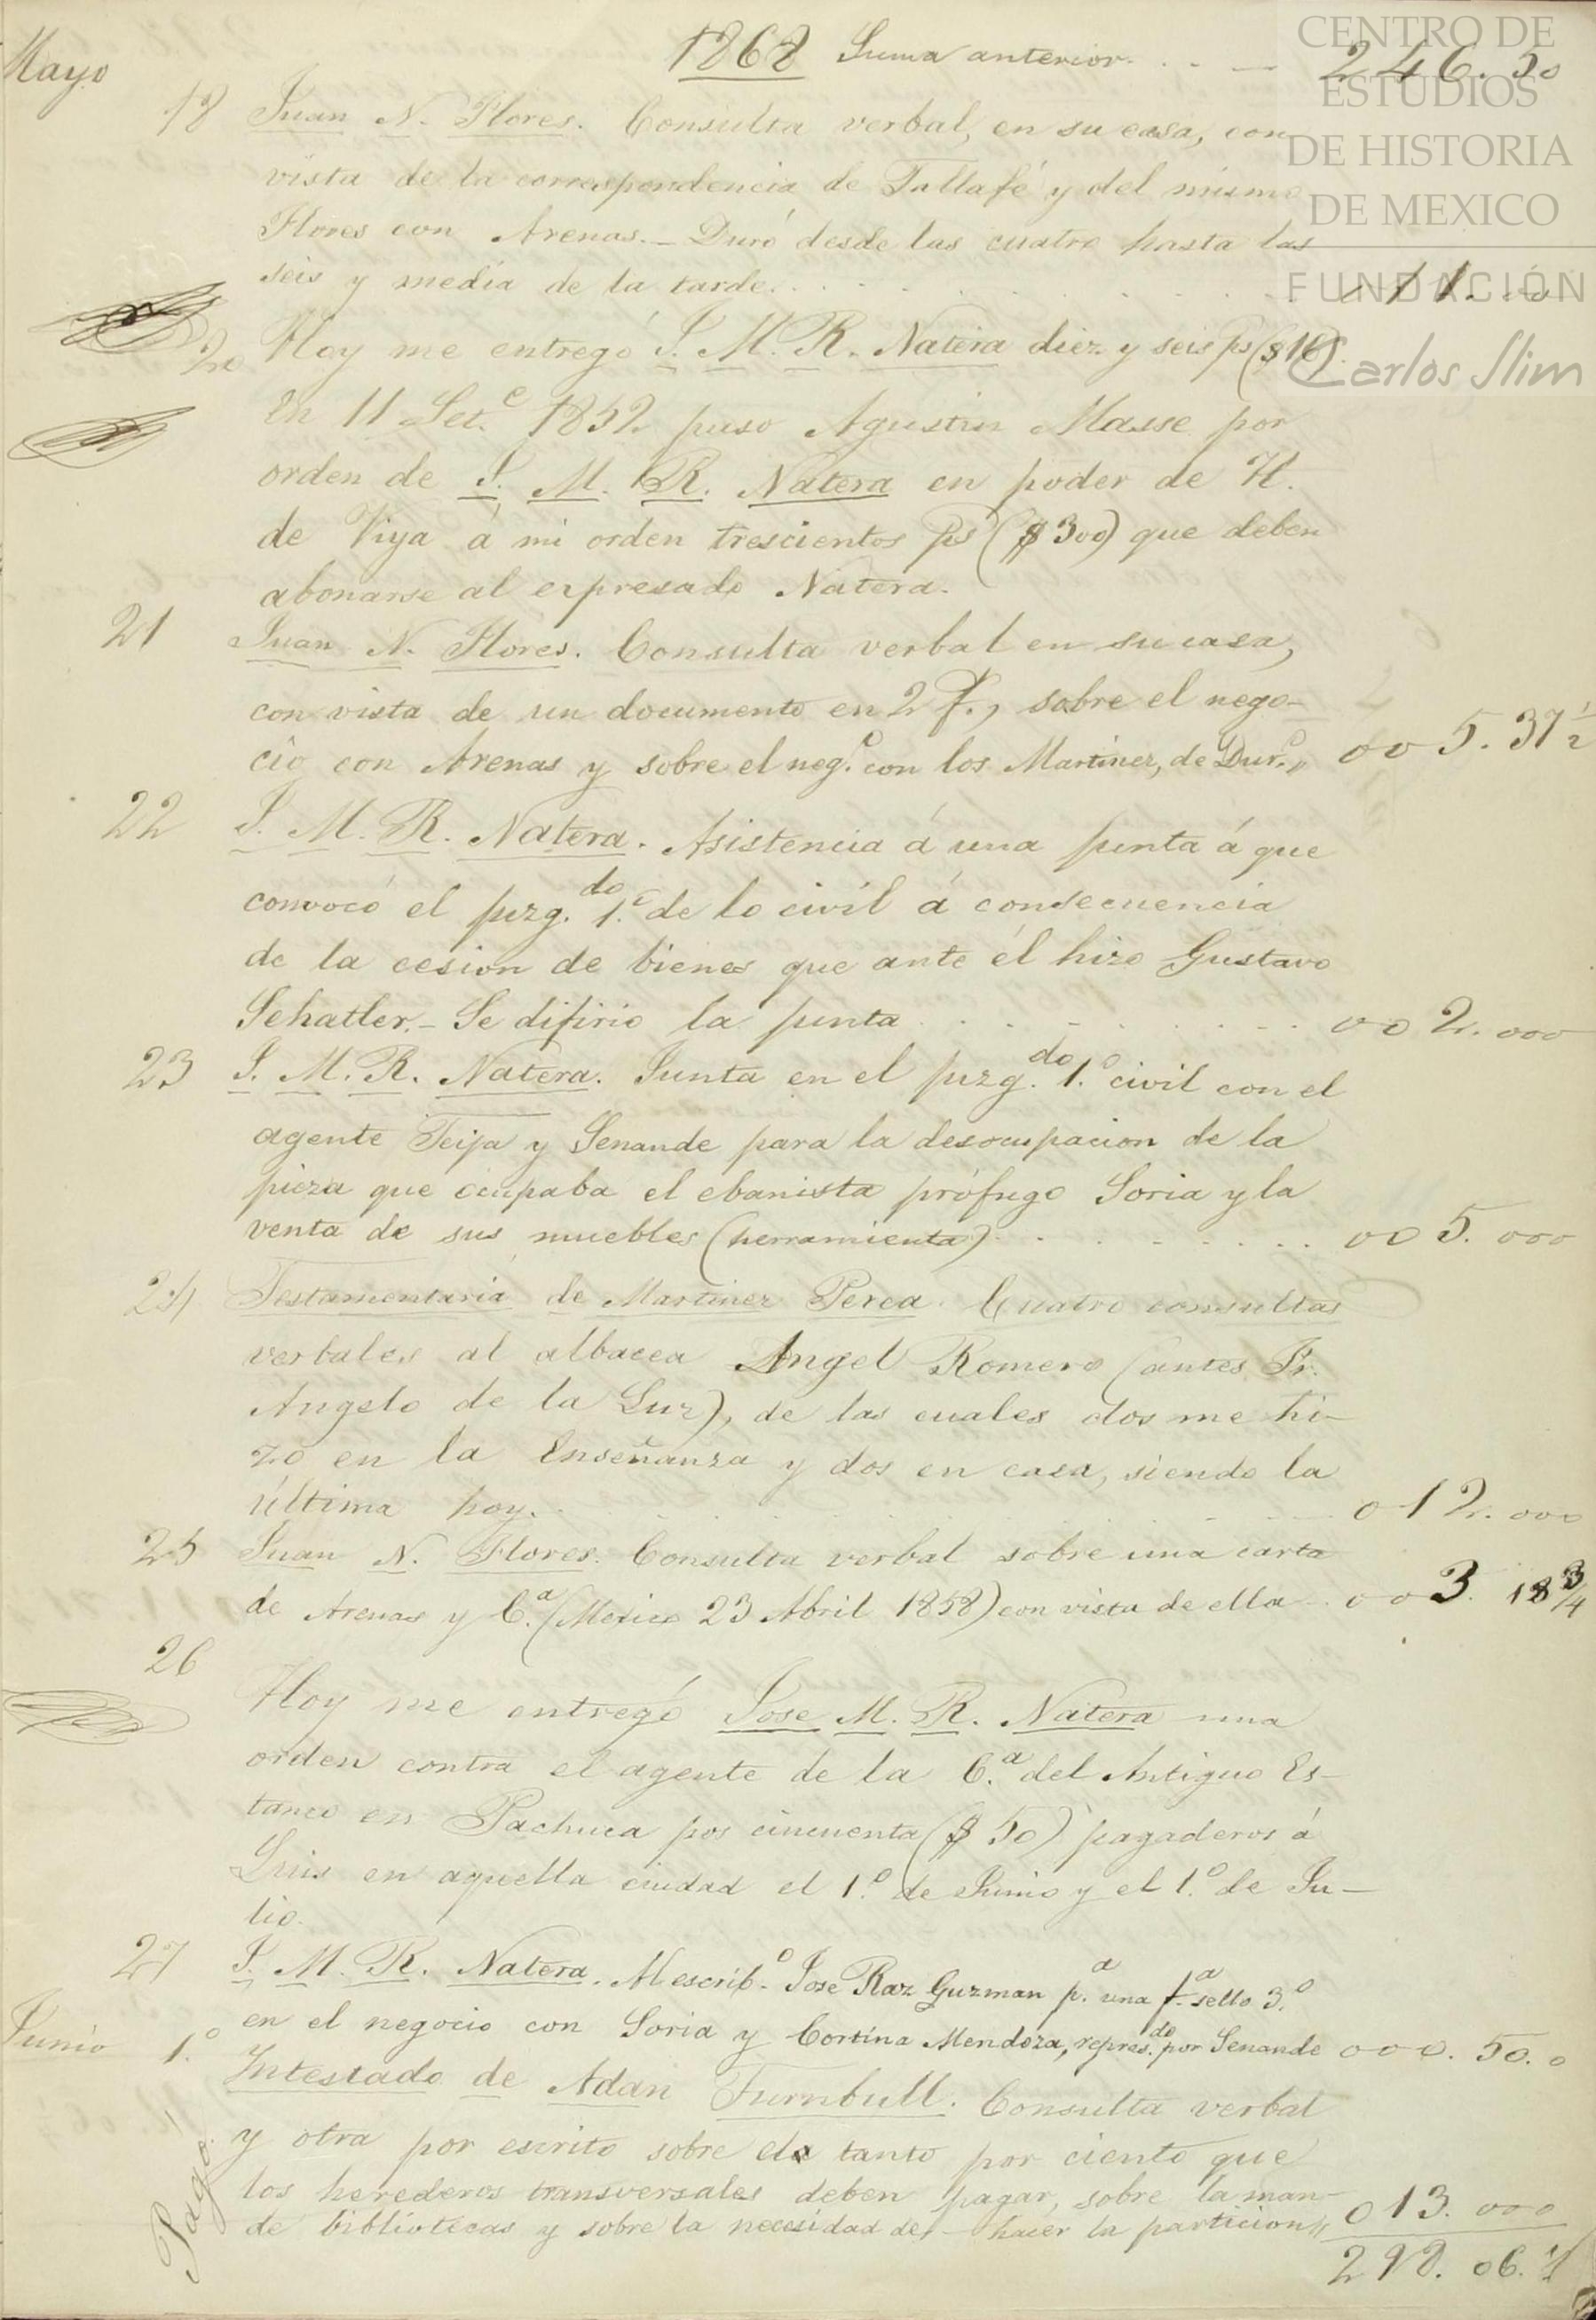 Mayo 1868 Suma anterior. . . — 246. 50
CENTRO DE
ESTUDIOS
DE HISTORIA
DE MEXICO
FUNDACIÓN
Carlos Slim
18 Juan N. Flores. Consulta verbal, en su casa, con
vista de la correspondencia de Tallafé y del mismo
Flores con Arenas.— Duró desde las cuatro hasta las
seis y media de la tarde. . . . 11. 00
20 Hoy me entregó J. M. R. Natera diez y seis ps ($16).
En 11 Set.e 1852 puso Agustin Masse por
orden de J. M. R. Natera en poder de H.
de Viya á mi orden trescientos ps ($300) que deben
abonarse al expresado Natera.
21 Juan N. Flores. Consulta verbal en su casa,
con vista de un documento en 2 f., sobre el nego-
cio con Arenas y sobre el neg.o con los Martinez, de Dur.o,, 005. 37 1/2
22 J. M. R. Natera. Asistencia á una junta á que
convocó el juzg.do 1.o de lo civil á consecuencia
de la cesion de bienes que ante él hizo Gustavo
Schatler.— Se difirió la junta . . . . 002. 000
23 J. M. R. Natera. Junta en el juzg.do 1.o civil con el
agente Teija y Senande para la desocupacion de la
pieza que ocupaba el ebanista prófugo Soria y la
venta de sus muebles (herramienta) . . . . 005. 000
24 Testamentaria de Martinez Perea. Cuatro consultas
verbales al albacea Angel Romero (antes Fr.
Angelo de la Luz), de las cuales dos me hi-
zo en la Enseñanza y dos en casa, siendo la
última hoy. . . . 012. 000
25 Juan N. Flores. Consulta verbal sobre una carta
de Arenas y C.a (Mexico 23 Abril 1858) con vista de ella . . 003. 18 3/4
26
Hoy me entregó Jose M. R. Natera una
orden contra el agente de la C.a del Antiguo Es-
tanco en Pachuca por cincuenta ($ 50) pagaderos á
Luis en aquella ciudad el 1.o de Junio y el 1.o de Ju-
lio.
27 J. M. R. Natera. Al escrib.o Jose Raz Guzman p.a una f.a sello 3.o
en el negocio con Soria y Cortina Mendoza, repres.do por Senande 000. 50. 0
Junio 1.o Intestado de Adan Turnbull. Consulta verbal
y otra por escrito sobre el tanto por ciento que
los herederos transversales deben pagar, sobre la man-
de bibliotecas y sobre la necesidad de hacer la particion,, 013. 000
Pagó.
298. 06. 1/4